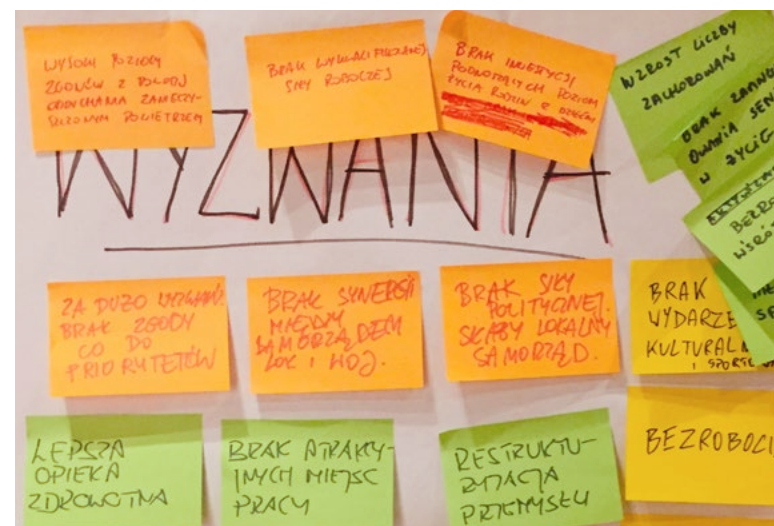 WYSOKI POZIOM
ZGONÓW Z POWODU
ODDYCHANIA ZANIECZY-
SZCZONYM POWIETRZEM
BRAK WYKWALIFIKOWANEJ
SIŁY ROBOCZEJ
BRAK INWESTYCJI
PODNOSZĄCYCH POZIOM
ŻYCIA RODZIN Z DZIEĆMI
WZROST LICZBY
ZACHOROWAŃ
BRAK
W ŻYCIE
WYZWANIA
ZA DUŻO WYZWAŃ.
BRAK ZGODY
CO DO
PRIORYTETÓW
BRAK SYNERGII
MIĘDZY
SAMORZĄDEM
LOK I WOJ.
BRAK SIŁY
POLITYCZNEJ.
SŁABY LOKALNY
SAMORZĄD.
BRAK
WYDARZE
KULTURALN
I SPORTOW
LEPSZA
OPIEKA
ZDROWOTNA
BRAK ATRAKCY-
JNYCH MIEJSC
PRACY
RESTRUKTU-
RYZACJA
PRZEMYSŁU
BEZROBOCI